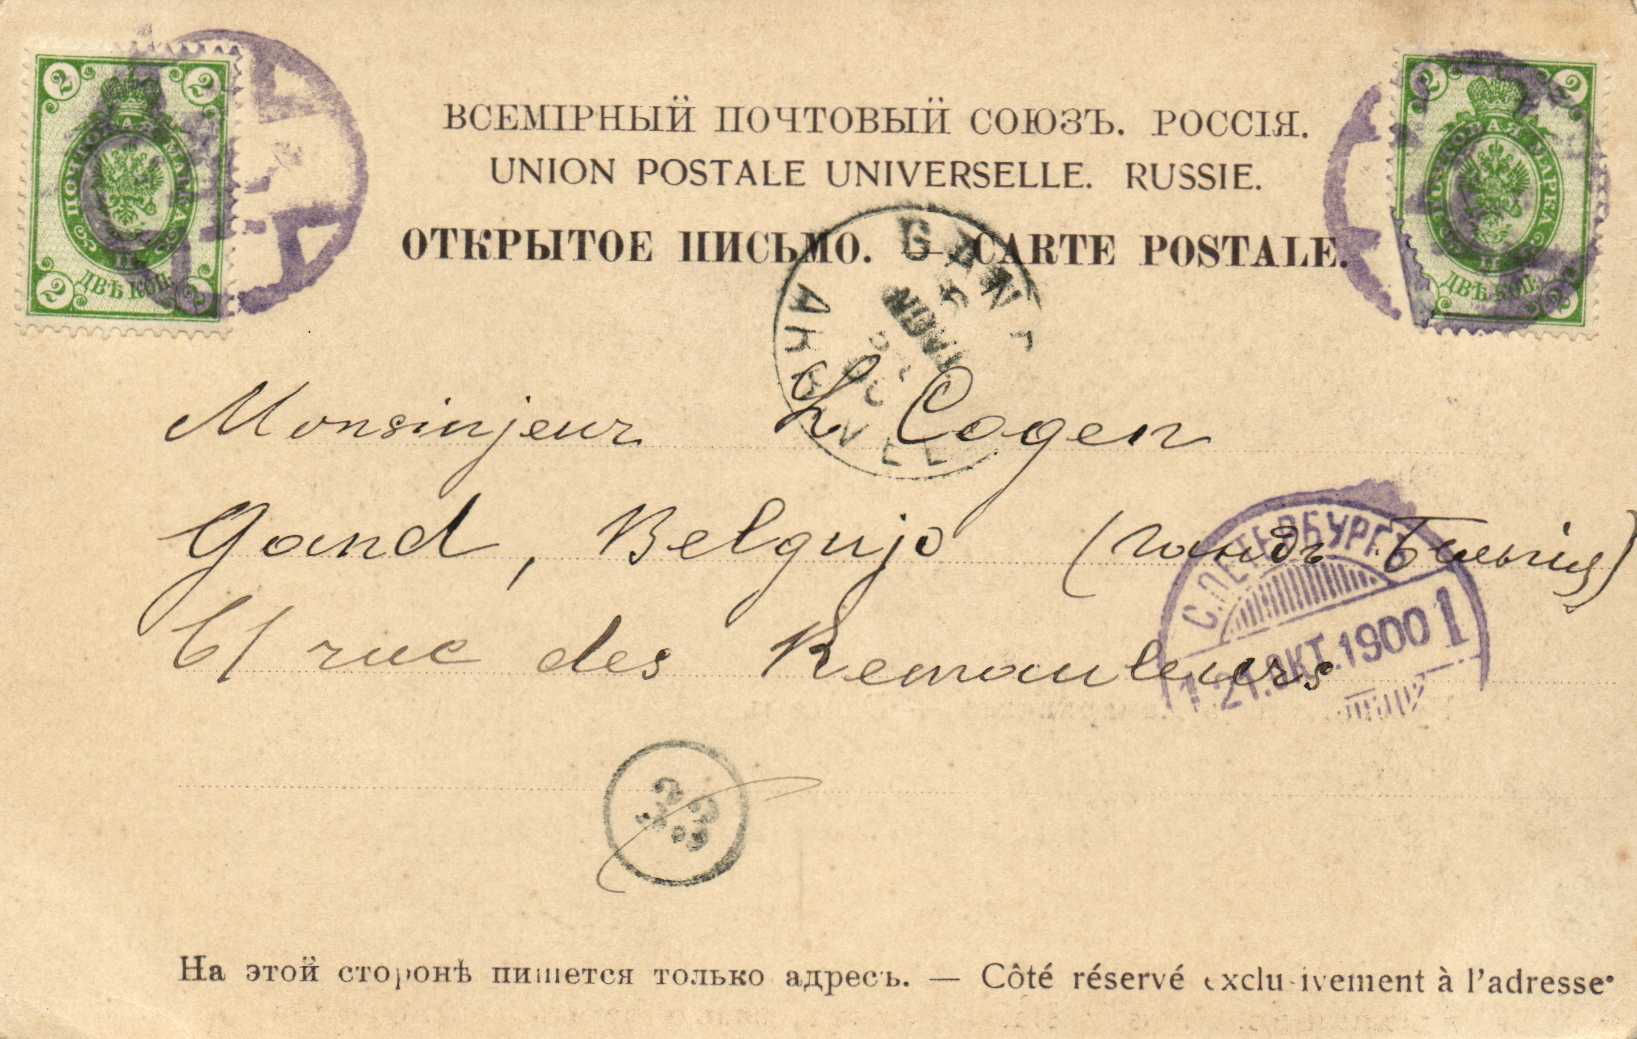 2 2
ПОЧТОВАЯ МАРКА
ДВѢ КОП.
2 2
2 2
ПОЧТОВАЯ МАРКА
ДВѢ КОП.
2
ВСЕМІРНЫЙ ПОЧТОВЫЙ СОЮЗЪ. РОССІЯ.
UNION POSTALE UNIVERSELLE. RUSSIE.
ОТКРЫТОЕ ПИСЬМО. — CARTE POSTALE.
Monsinjeur L Cogen
Gand, Belgujo (Гандъ Бельгія)
61 rue des Remouleurs
С.ПЕТЕРБУРГЪ
1 21.ОКТ.1900 1
33
На этой сторонѣ пишется только адресъ. — Côté réservé exclusivement à l'adresse